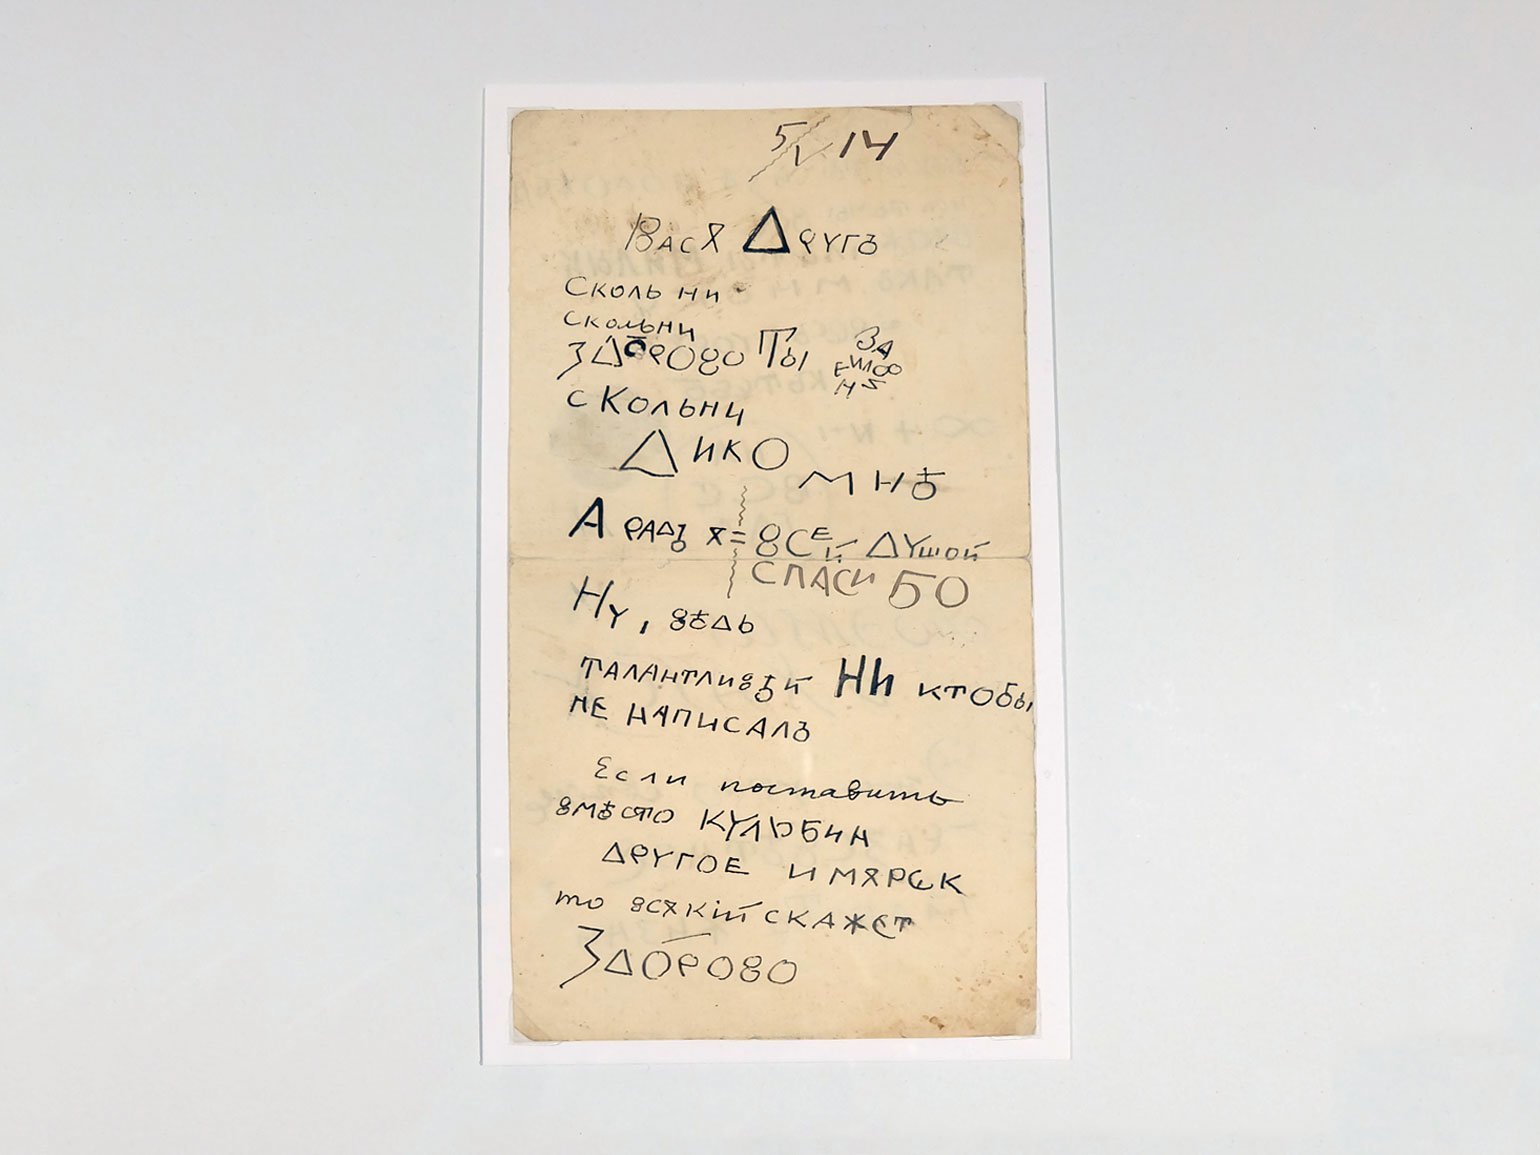 5/V 14
Вася Другъ
Сколь ни
скольни
Здорово Ты
скольни
Дико
мнѣ
А радъ я = всей душой
спасибо
Ну, вѣдь
талантливѣй НИ ктобы
не написалъ
Если поставить
вмѣсто Кульбин
другое имярек
то всякій скажет
Здорово